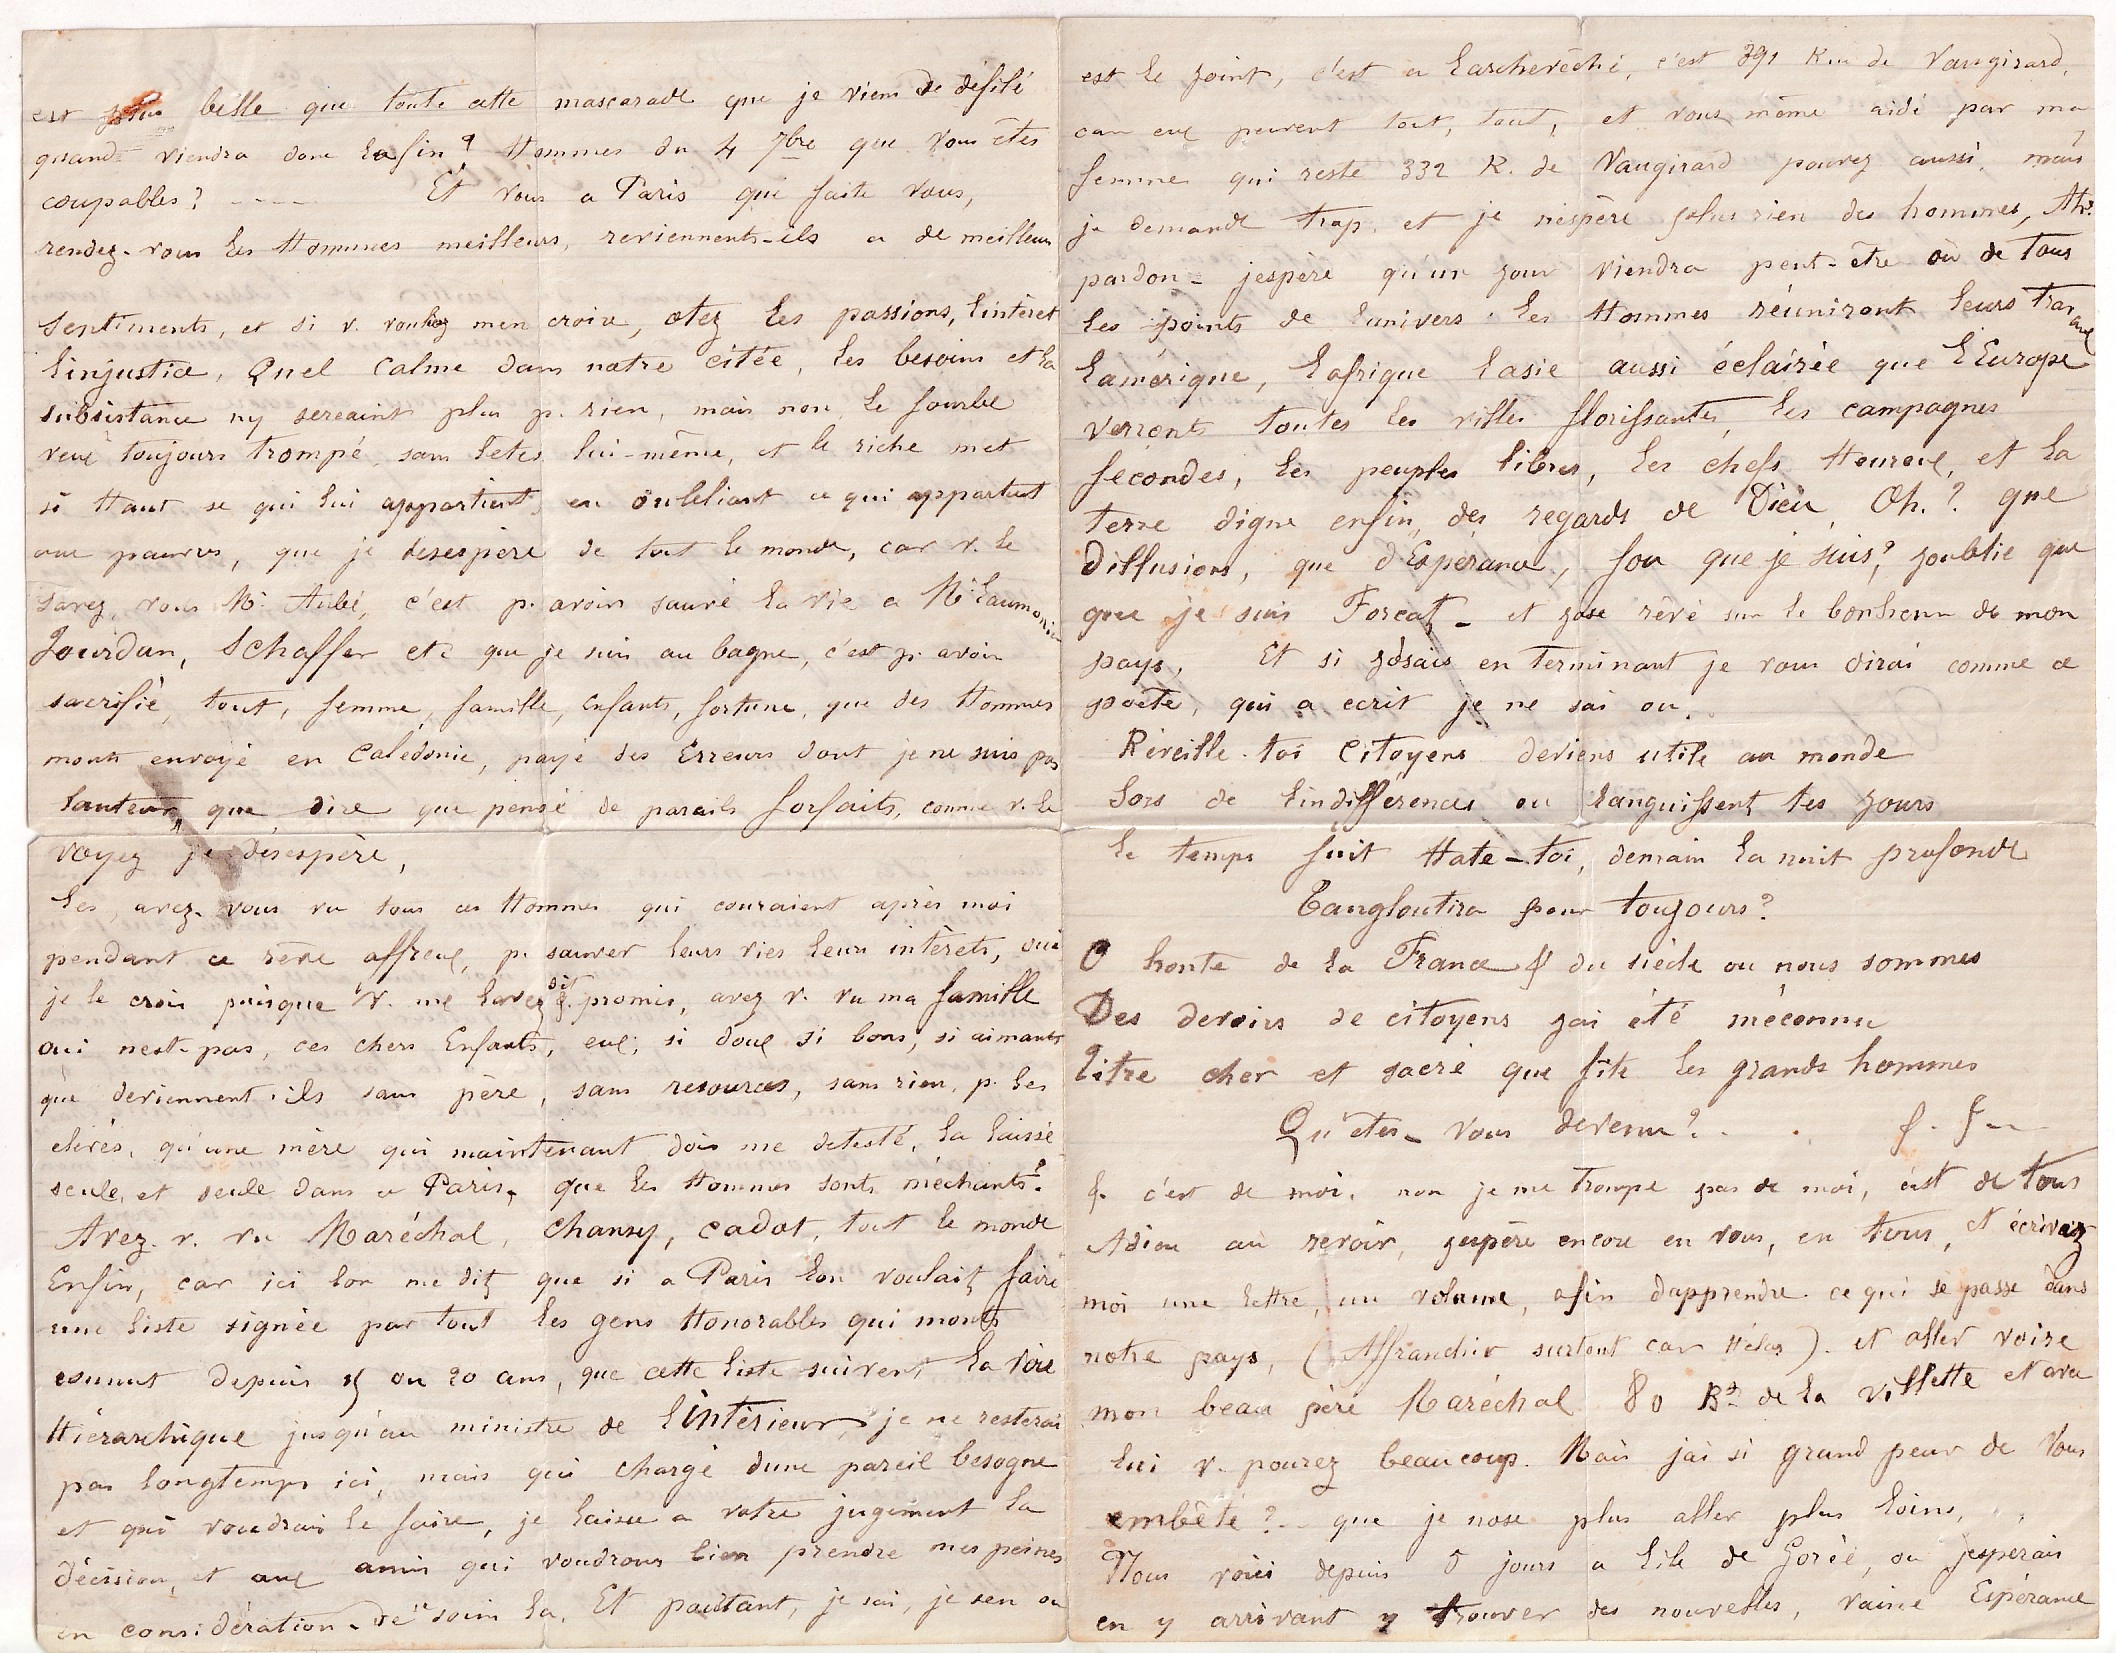 est plus belle que toute cette mascarade que je viens de défilé
quand viendra donc la fin ? Hommes du 4 7bre que vous êtes
coupables ? ---- Et vous a Paris que faite vous,
rendez-vous les Hommes meilleurs, reviennents-ils a de meilleurs
Sentiments, et si v. voulez men croire, otez les passions, lintèret
linjustice, Quel Calme dans notre citée, les besoins et la
subsistance ny sereaint plus p. rien, mais non le fourbe
veut toujours trompé, sans letes lui-même, et le riche met
si Haut se qui lui appartient, en oubliant ce qui appartient
aux pauvres, que je desespère de tout le monde, car v. le
savez, vous Mr. Aubé, c'est p. avoir sauvé la vie a Mr. Laumonier
Jourdan, Schaffer etc que je suis au bagne, c'est p. avoir
sacrifié, tout, femme, famille, enfants, fortune, que des Hommes
monts envoyé en Calédonie, payé des Erreurs dont je ne suis pas
lauteur, que dire que pensé de pareils forfaits, comme v. le
voyez je desespère,
Les, avez-vous vu tous ces Hommes qui couraient après moi
pendant ce rêve affreux, p. sauver leurs vies leurs intèrets, oui
je le crois puisque v. me lavez dit p. promis, avez v. vu ma famille
oui nest-pas, ces chers Enfants, eux, si doux si bons, si aimants
que deviennent-ils sans père, sans resources, sans rien, p. les
elevés, qu'une mère qui maintenant dois me detesté, la laissé
seule, et seule dans ce Paris, que les Hommes sonts mèchants ?
Avez-v. vu Maréchal, Chansy, Cadot, tout le monde
Enfin, car ici lon me dit que si a Paris lon voulait faire
une liste signée par tout les gens Honorables qui monts
connut depuis 15 ou 20 ans, que cette liste suivent la voie
Hièrarchique jusqu'au ministre de lintèrieur, je ne resterai
pas longtemps ici, mais qui chargé dune pareil besogne
et qui voudrais le faire, je laisse a votre jugement la
dècision, et aux amis qui voudrons bien prendre mes peines
en considèration de soin la. Et pourtant, je sai, je sen ou
est le joint, c'est a Larchevèché, c'est 391 Rue de Vaugirard,
car eux peuvent tout, tout, et vous même aidé par ma
femme qui reste 332 R. de Vaugirard pouvez aussi, mais
je demande trop, et je nespère plus rien des hommes, Ah !
pardon - jespère qu'un jour viendra peut-être où de tous
les points de lunivers les Hommes réuniront leurs travaux
Lamérique, Lafrique lasie aussi éclairée que l'Europe
verronts toutes les villes florissantes, les campagnes
fécondes, les peuples libres, les chefs Heureux, et la
terre digne enfin, des regards de Dieu, Oh. ? que
Dillusions, que d'Espérance, fou que je suis ? joublie que
que je suis Forcat - et jose rêvé sur le bonheur de mon
pays. Et si josais en terminant je vous dirai comme ce
poëte, qui a ecrit je ne sai ou.
Réveille-toi Citoyens deviens utile au monde
Sors de lindifférences ou languissent tes jours
le temps fuit Hate-toi, demain la nuit profonde
Tangloutira pour toujours ?
O honte de la France & du siècle ou nous sommes
Des devoirs de citoyens jai été méconnu
Titre cher et sacré que fite les grands hommes
Qu'etes-vous devenu ?
c'est de moi, non je me trompe pas de moi, c'est de tous
Adieu au revoir, jespère encore en vous, en tous, et écrivez
moi une lettre, un volume, afin dapprendre ce qui se passe dans
notre pays, (Affranchir surtout car Hélas). et aller voire
mon beau père Maréchal 80 Bd de la Villette et avec
lui v. pourez beaucoup. Mais jai si grand peur de Vous
embêté ? -- que je nose plus aller plus loins,
Nous voici depuis 5 jours a lile de Gorée, ou jesperais
en y arrivant y trouver des nouvelles, vaine Espérance